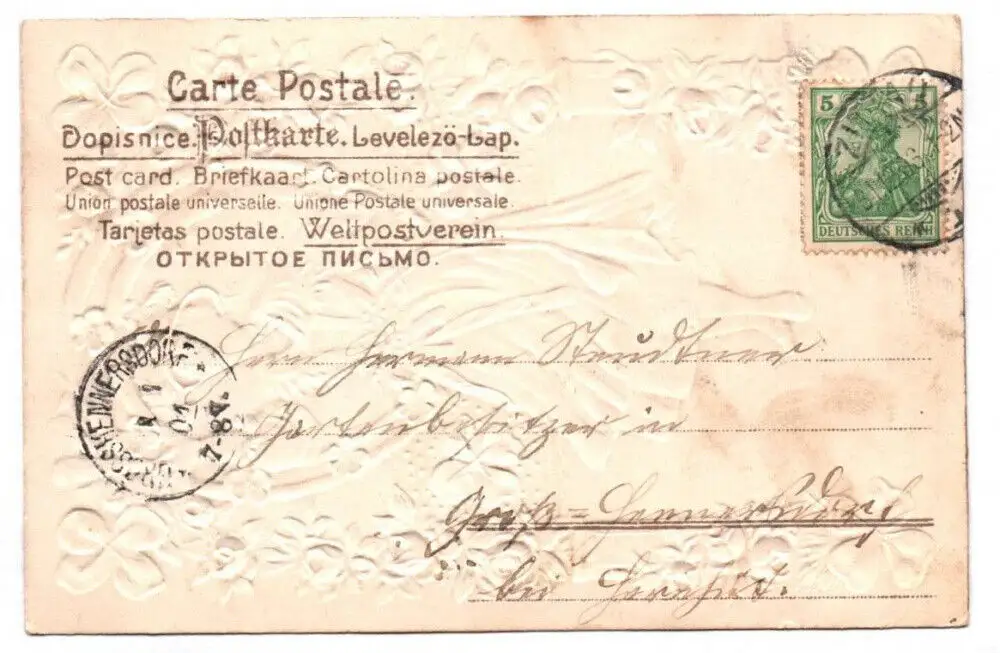 Carte Postale.
Dopisnice. Postkarte. Levelezö-Lap.
Post card. Briefkaart. Cartolina postale.
Union postale universelle. Unione Postale universale.
Tarjetas postale. Weltpostverein.
ОТКРЫТОЕ ПИСЬМО.
5 5
DEUTSCHES REICH
ZITTAU
GROSSHENNERSDORF
8 1
01
7-8V.
Herrn Hermann Staudtner
Gartenbesitzer in
Groß-Hennersdorf
bei Herrnhut.